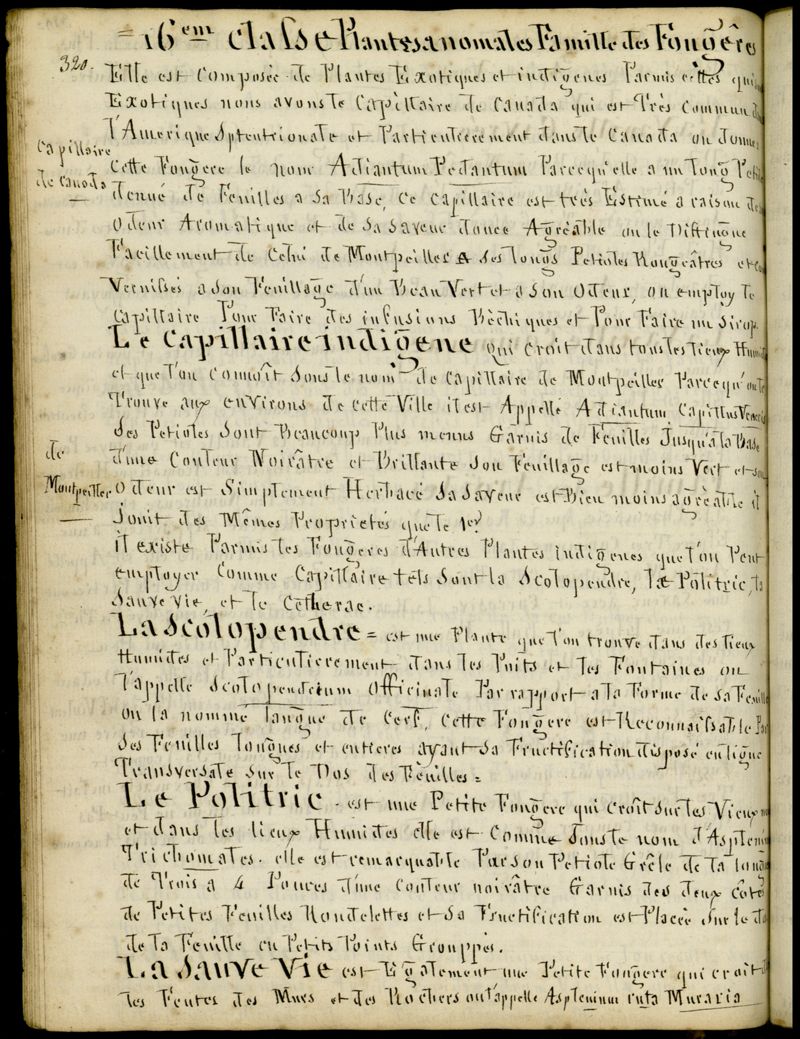 = 16em Classe Plantes anomales Famille des Fougêres
320.
Elle est Composée de Plantes Exotiques et indigenes Parmis cettes qui
Exotiques nous avons le Capillaire de Canada qui est Très Commun
l'Amerique Sptentrionale et Particulierement dans le Canada on donne
Capillaire
de Canada
Cette Fougere le nom Adiantum Pedantum Parcequ'elle a un long Peti
denué de Feuilles a Sa Base, Ce Capillaire est très Estimé a raison de
Odeur Aromatique et de Sa Saveur douce Agréable on le Distingue
Facillement de Celui de Montpeiller a Ses longs Petioles Rougeâtres et
Vernissés a Son Feuillage d'un Beau Vert et a Son Odeur, on employ le
Capillaire Pour Faire des infusions Béchiques et Pour Faire un Sirop.
Le Capillaire indigene qui Croit dans tous les lieux Humi
et que l'on Connoît Sous le nom de Capillaire de Montpeiller Parcequ'on le
Trouve aux environs de Cette Ville il est Appellé Adiantum Capillus Veneris
Ses Petioles Sont Beaucoup Plus menus Garnis de Feuilles Jusqu'a la Base
de
Montpeiller
d'une Couleur Noirâtre et Brillante Son Feuillage est moins Vert et son
Odeur est Simplement Herbacé Sa Saveur est Bien moins agréable il
Jouit des Mêmes Proprietés que le 1er
il existe Parmis les Fougeres d'Autres Plantes indigenes que l'on Peut
employer Comme Capillaire tels Sont la Scolopendre, le Politric, la
Sauve vie, et le Cetherac.
La Scolopendre = est une Plante que l'on trouve dans des lieux
Humides et Particulierement dans les Puits et les Fontaines on
l'appelle Scolopendrium Officinale Par rapport a la Forme de Sa Feuille
on la nomme langue de Cerf, Cette Fougere est Reconnaissable Par
Ses Feuilles longues et entieres ayant Sa Fructification disposé en ligne
Transversale Sur le Dos des Feuilles =
Le Politric - est une Petite Fougere qui croît Sur les Vieux
et dans les lieux Humides elle est Comme Sous le nom d'Aspleni
Trichomales. elle est remarquable Par Son Petiole Grêle de la long
de Trois a 4 Pouces d'une Couleur noirâtre Garnis des deux Côté
de Petites Feuilles Rondelettes et Sa Fructification est Placée Sur le d
de la Feuille en Petits Points Grouppés.
La Sauve Vie est Egalement une Petite Fougere qui croit
les Fentes des Murs et des Rochers on l'appelle Asplenium ruta Muraria